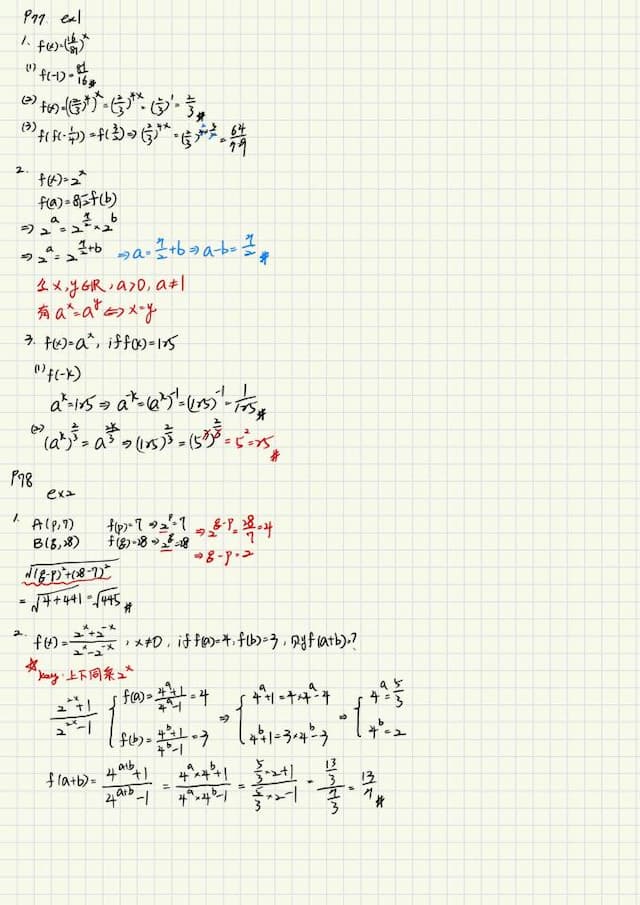 P77 ex1
1. f(x)=(16/81)^x
(1) f(-1)=81/16 #
(2) f(x)=((2/3)^4)^x=(2/3)^4x=(2/3)^1=2/3 #
(3) f(f(-1/4))=f(3/2)⇒(2/3)^4x= =64/729
2. f(x)=2^x
f(a)=8√2f(b)
⇒2^a=2^(7/2)×2^b
⇒2^a=2^(7/2+b) ⇒a=7/2+b⇒a-b=7/2 #
x,y∈R,a>0,a≠1
有a^x=a^y⇔x=y
3. f(x)=a^x, if f(k)=125
(1) f(-k)
a^k=125⇒a^-k=(a^k)^-1=(125)^-1=1/125 #
(2) (a^k)^(2/3)=a^(2k/3)⇒(125)^(2/3)=(5^3)^(2/3)=5^2=25 #
P78
ex2
1. A(p,7) f(p)=7⇒2^p=7 ⇒2^(q-p)=28/7=4
B(q,28) f(q)=28⇒2^q=28 ⇒q-p=2
√((q-p)^2+(28-7)^2)
=√(4+441)=√445 #
2. f(x)=(2^x+2^-x)/(2^x-2^-x), x≠0, if f(a)=4, f(b)=3, 則f(a+b)=?
☆key:上下同乘2^x
(2^2x+1)/(2^2x-1) { f(a)=(4^a+1)/(4^a-1)=4 ⇒ { 4^a+1=4×4^a-4 ⇒ { 4^a=5/3
f(b)=(4^b+1)/(4^b-1)=3 4^b+1=3×4^b-3 4^b=2
f(a+b)=(4^(a+b)+1)/(4^(a+b)-1)=(4^a×4^b+1)/(4^a×4^b-1)=(5/3×2+1)/(5/3×2-1)=(13/3)/(7/3)=13/7 #